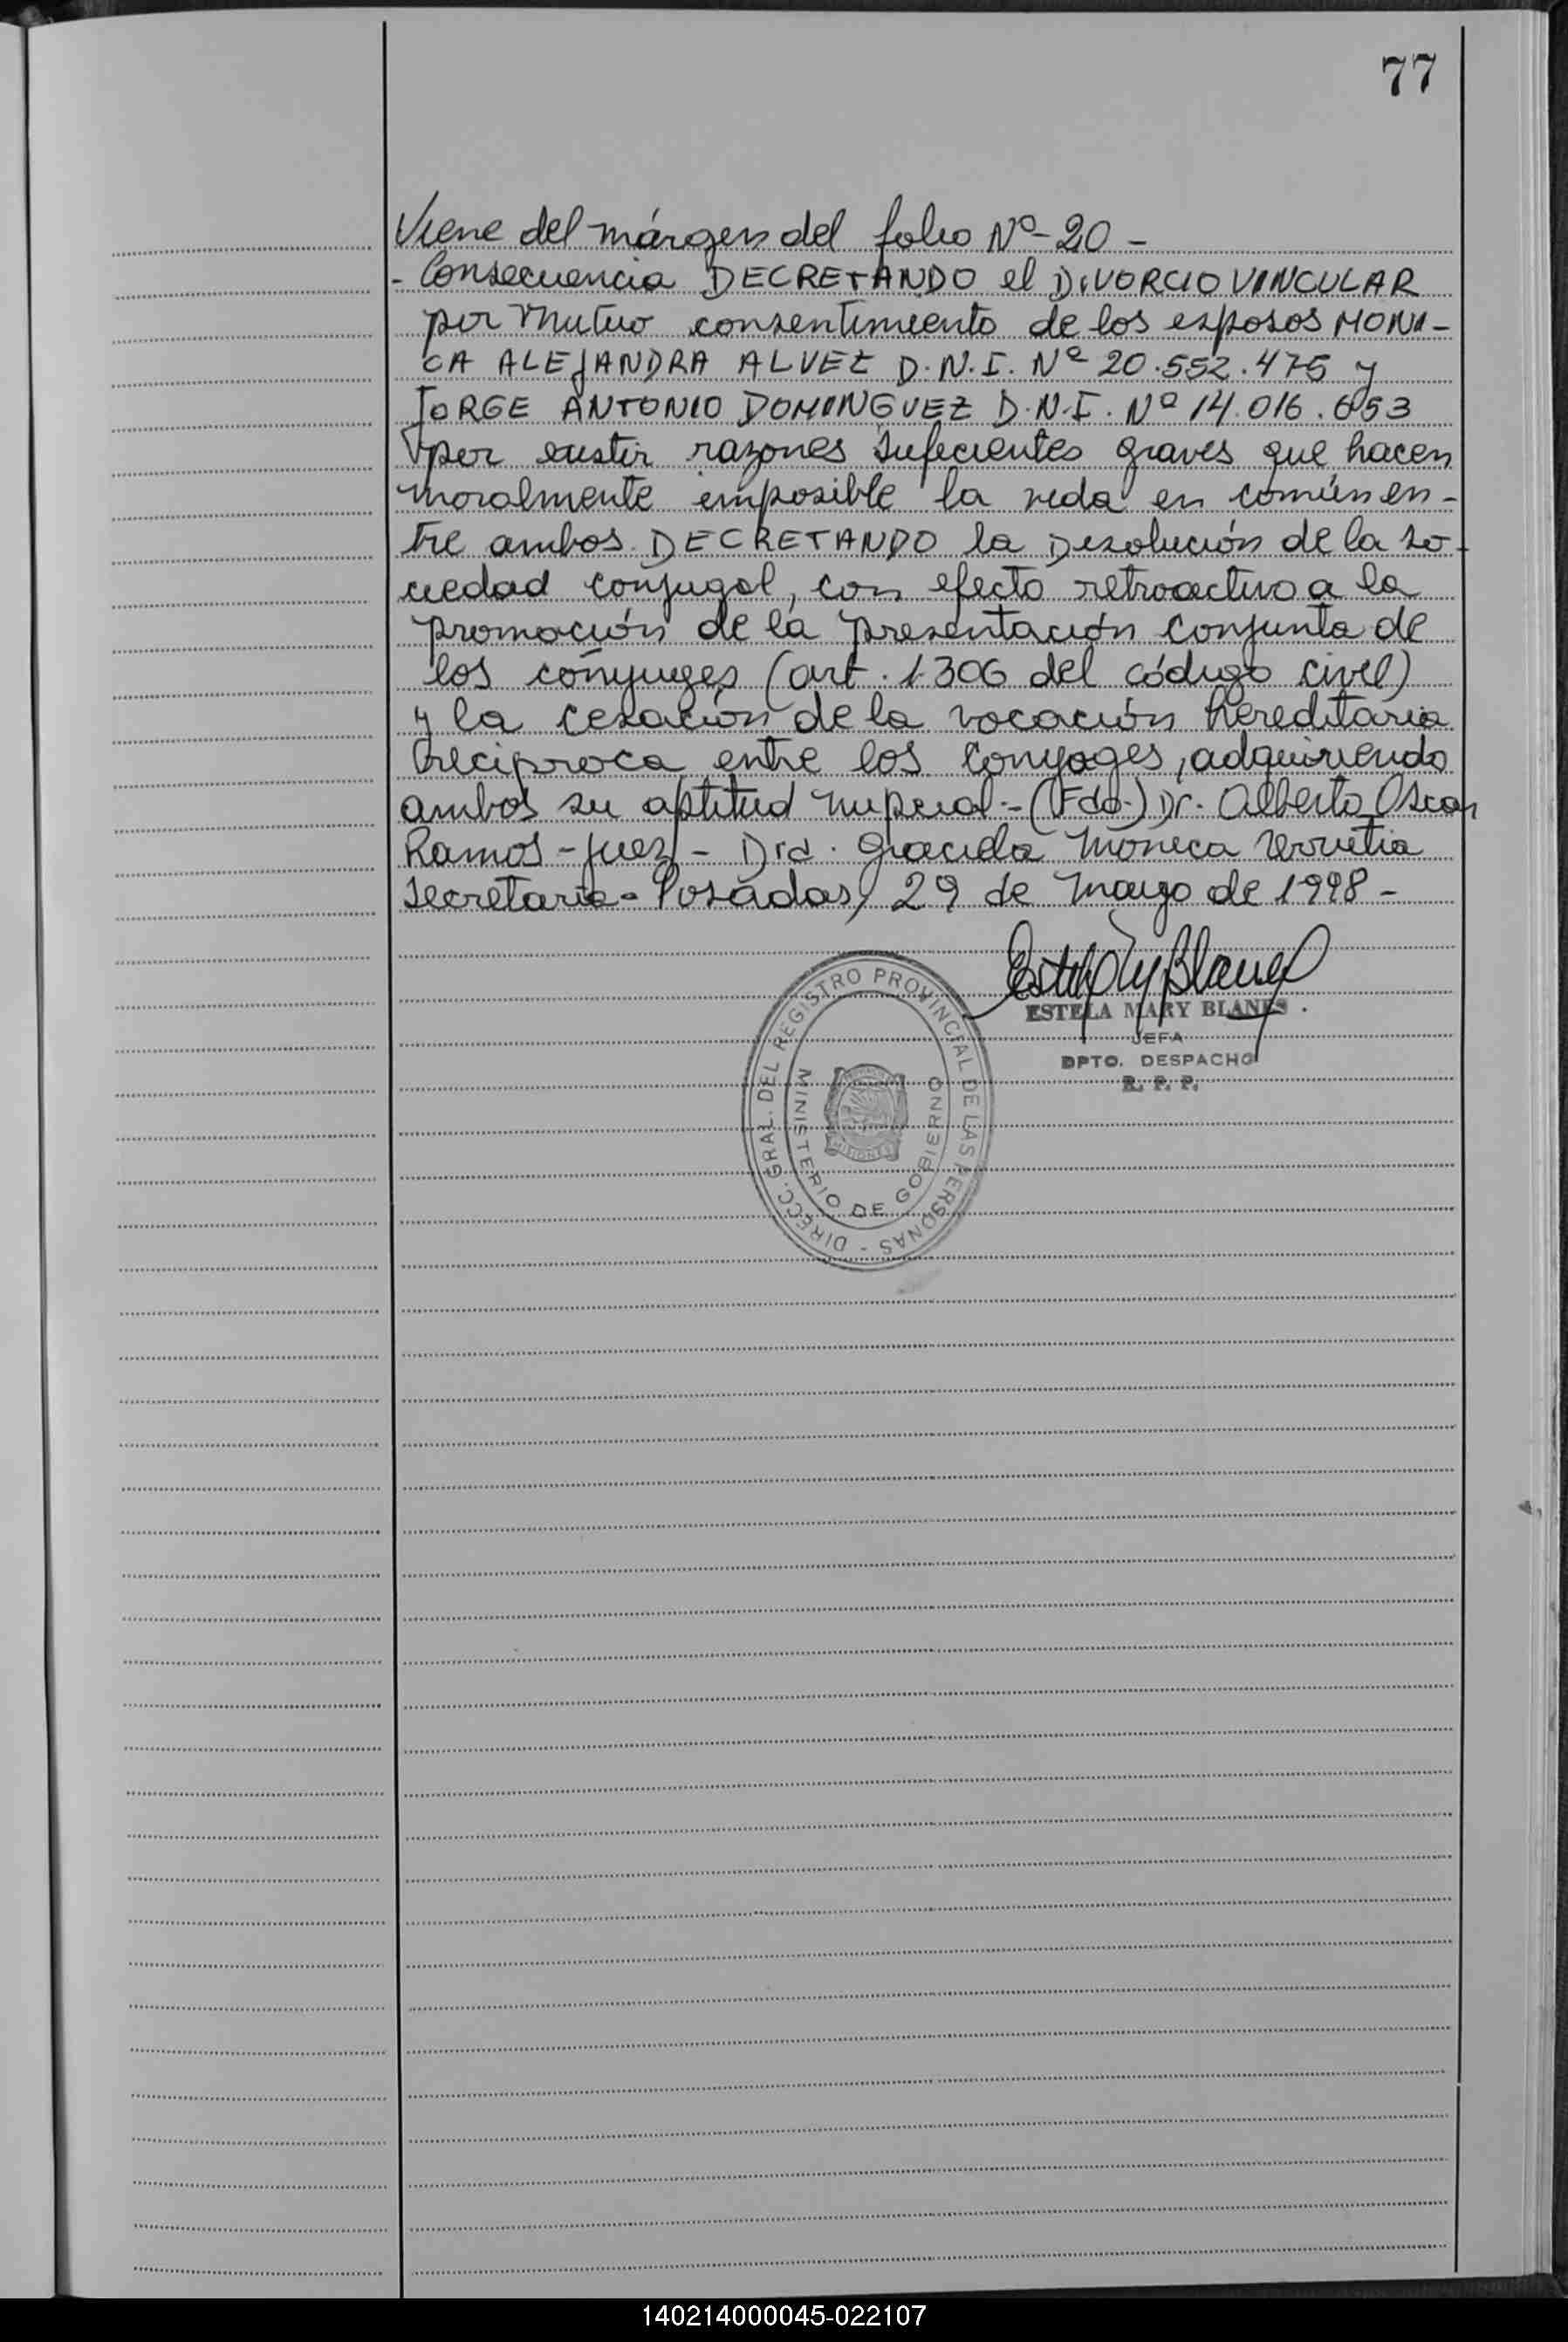 77
Viene del márgen del folio Nº 20 -
- Consecuencia DECRETANDO el DIVORCIO VINCULAR
por Mutuo consentimiento de los esposos MONI-
CA ALEJANDRA ALVEZ D.N.I. Nº 20.552.475 y
JORGE ANTONIO DOMINGUEZ D.N.I. Nº 14.016.653
por existir razones suficientes graves que hacen
moralmente imposible la vida en común en-
tre ambos. DECRETANDO la Disolución de la so-
ciedad conjugal, con efecto retroactivo a la
promoción de la presentación conjunta de
los cónyuges (art. 1306 del código civil)
y la cesación de la vocación hereditaria
reciproca entre los conyoges, adquiriendo
ambos su aptitud nupcial.- (Fdo.) Dr. Alberto Oscar
Ramos - Juez - Dra. Graciela Mónica Urrutia
Secretaria - Posadas, 29 de Mayo de 1998 -
ESTELA MARY BLANES.
JEFA
DPTO. DESPACHO
R. P. P.
DIRECC. GRAL. DEL REGISTRO PROVINCIAL DE LAS PERSONAS -
MINISTERIO DE GOBIERNO
MISIONES
140214000045-022107